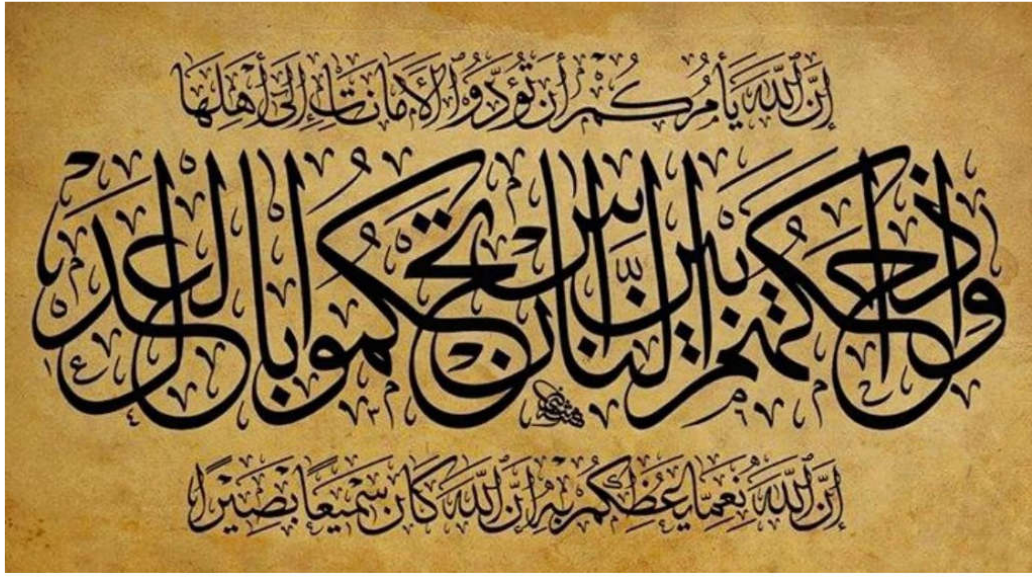 إِنَّ ٱللَّهَ يَأۡمُرُكُمۡ أَن تُؤَدُّواْ ٱلۡأَمَٰنَٰتِ إِلَىٰٓ أَهۡلِهَا
وإذا حكمتم بين الناس أن تحكموا بالعدل
إِنَّ ٱللَّهَ نِعِمَّا يَعِظُكُم بِهِ إِنَّ ٱللَّهَ كَانَ سَمِيعًا بَصِيرًا